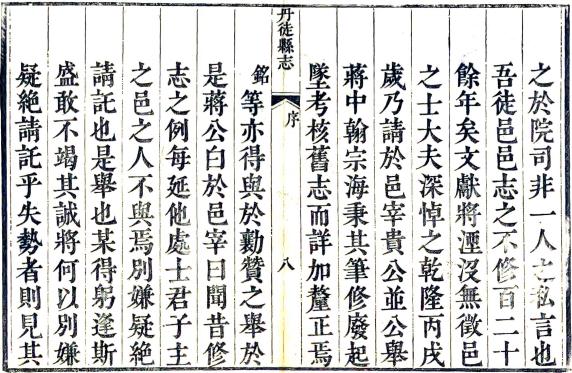 之於院司非一人之私言也
吾徒邑邑志之不修百二十
餘年矣文獻將湮沒無徵邑
之士大夫深悼之乾隆丙戌
歲乃請於邑宰貴公並公舉
蔣中翰宗海秉其筆修廢起
墜考核舊志而詳加釐正焉
丹徒縣志
序
八
銘等亦得與於勷贊之舉於
是蔣公白於邑宰曰聞昔修
志之例每延他處士君子主
之邑之人不與焉別嫌疑絶
請託也是舉也某得躬逢斯
盛敢不竭其誠將何以別嫌
疑絶請託乎失勢者則見其